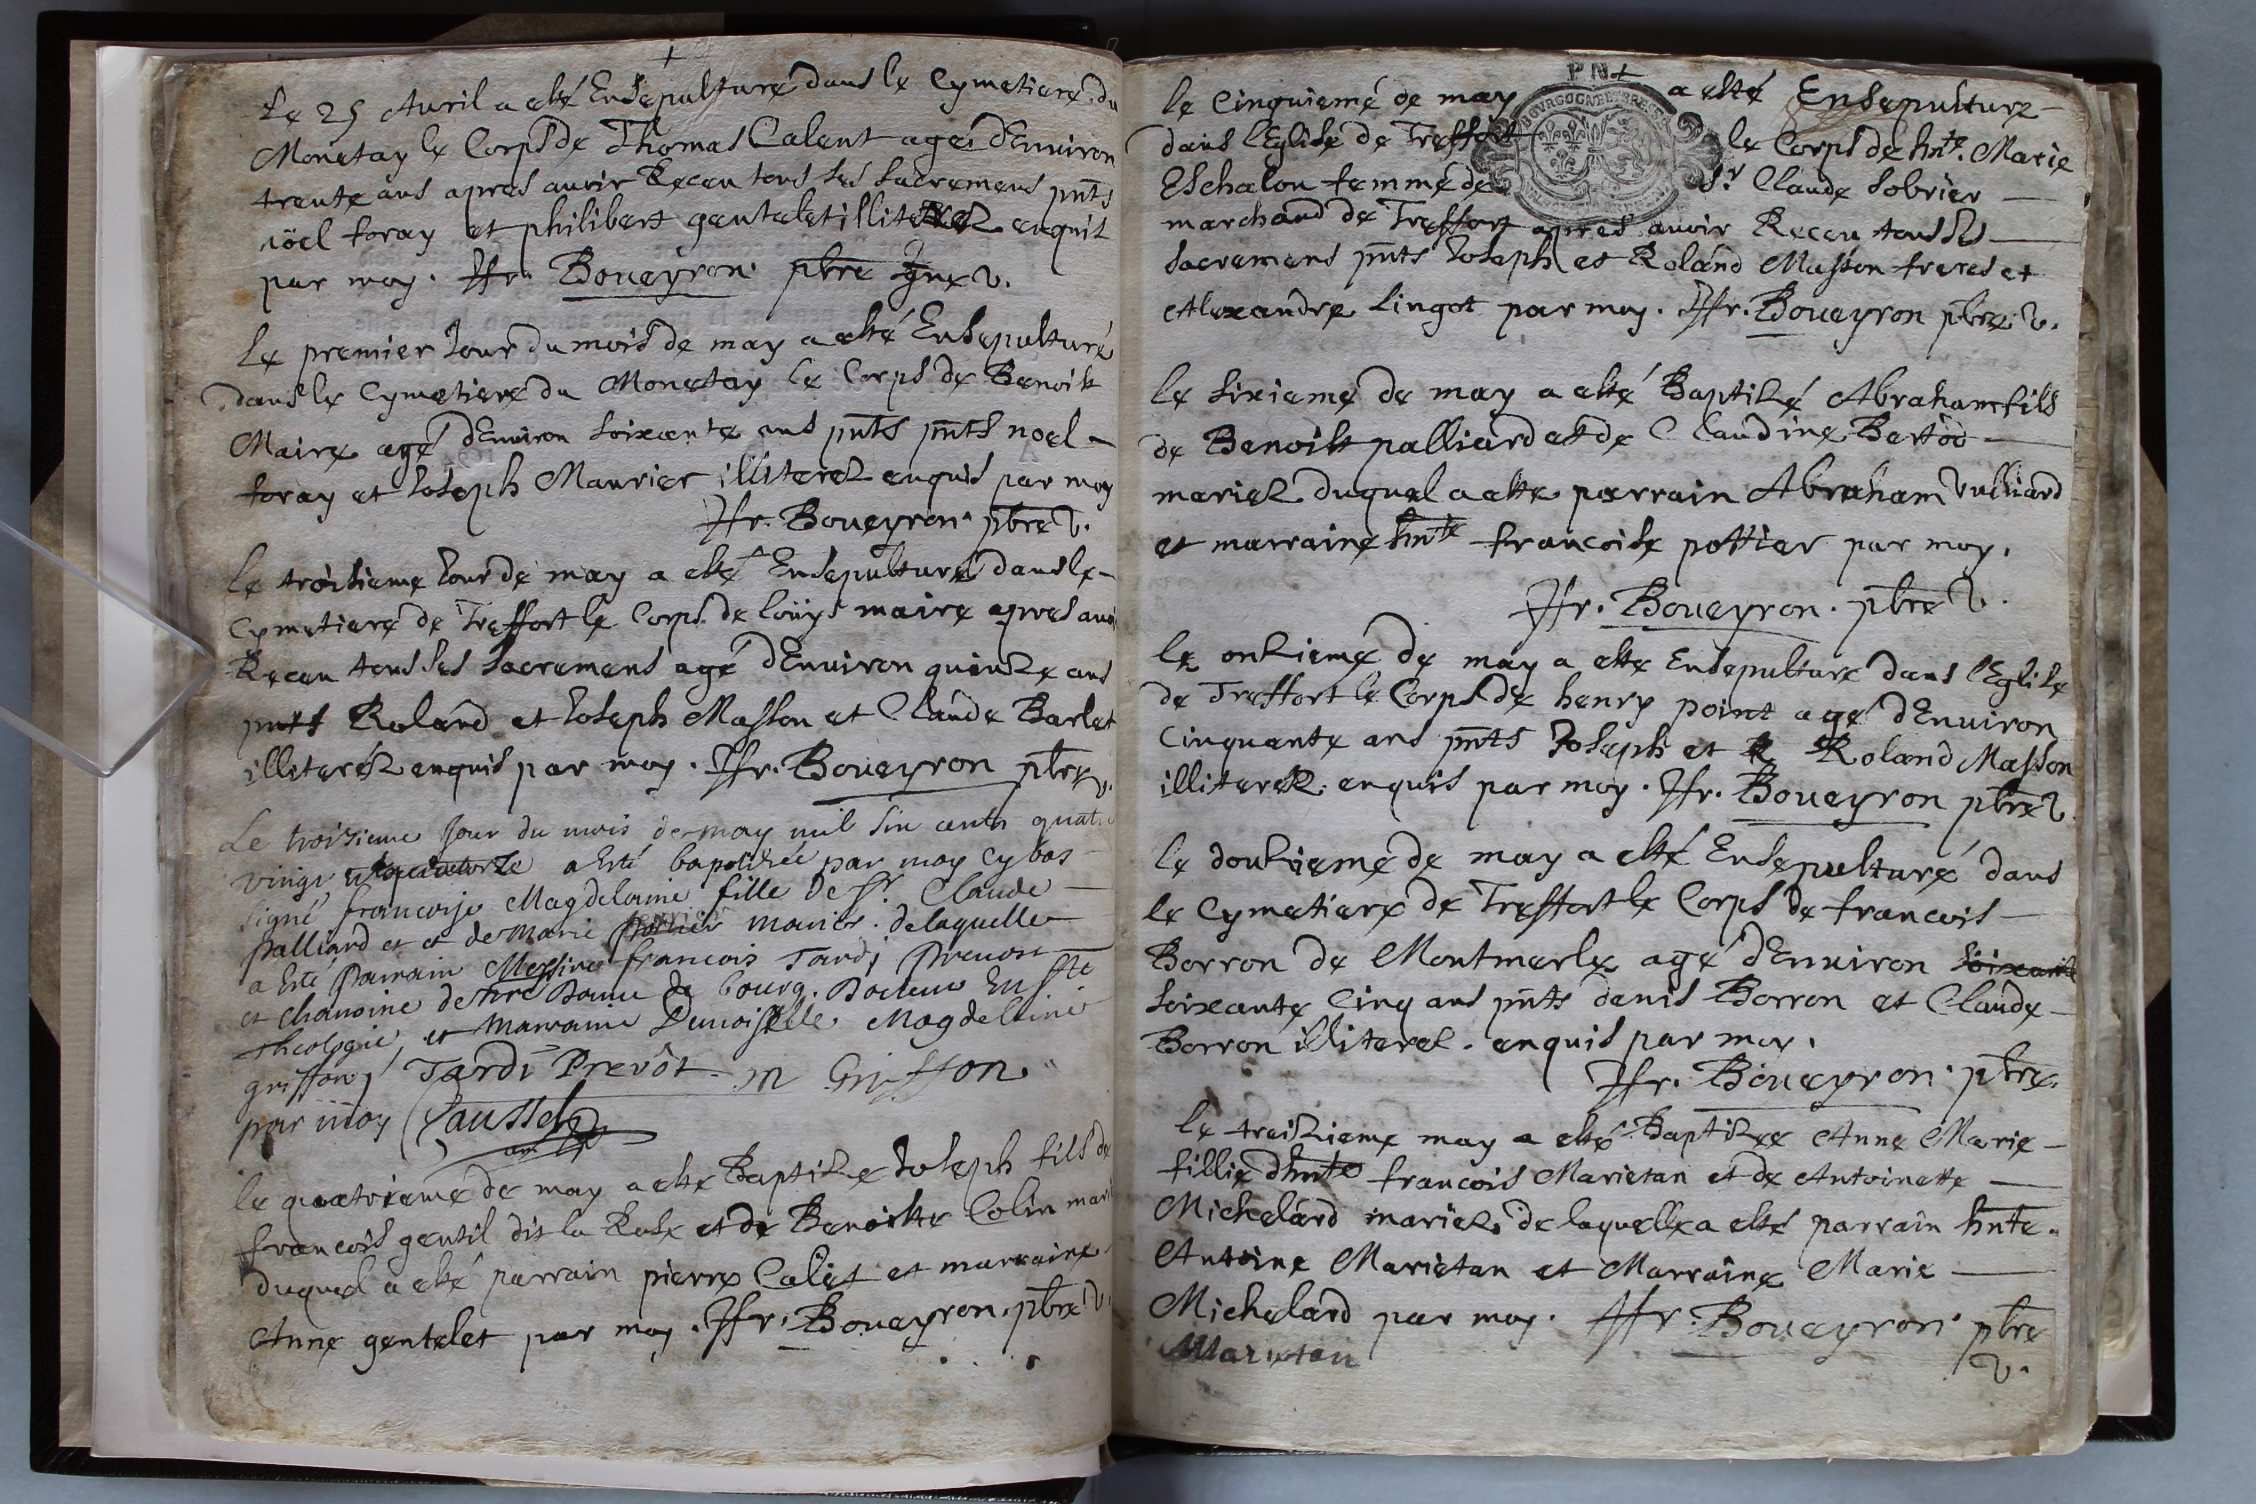 Le 25 Auril a esté Ensepulturé dans le Cymetiere du
Monetay le Corps de Thomas Calent agé d'Enuiron
trente ans apres auoir Receu tous ses sacremens pnts
nöel foray et philibert gentelet illiterez enquis
par moy. Ffr. Boueyron. pbre v.
le premier Jour du mois de may a esté Ensepulturé
dans le Cymetiere du Monetay le Corps de Benoist
Maire agé d'Enuiron soixante ans pnts pnts noel
foray et Joseph Maurier illiterez enquis par moy
Ffr. Boueyron. pbre v.
le troisieme Jour de may a esté Ensepulturé dans le
Cymetiere de Treffort le Corps de loüys maire apres auoi
Receu tous ses sacremens agé d'Enuiron quinze ans
pnts Roland et Joseph Masson et Claude Barlet
illiteréz enquis par moy. Ffr. Boueyron pbre v.
Le troisieme Jour du mois de may mil six cents quat
vingt quatorze a esté baptizée par moy cy bas
signé francoise Magdelaine fille de Sr. Claude
palliard et et de marie mariés. de laquelle
a esté Parrain Messire francois Tardi Preuost
et chanoine de nre Dame de bourg. Docteur En ste
theologie, et Marraine Demoiselle Magdelaine
griffon, Tardi Prevôt m Griffon
par moy Caussel
le quatrieme de may a esté Baptizé Joseph fils de
francois gentil dit la Rose et de Benoiste Colin mari
duquel a esté parrain pierre Caliet et marraine
Anne gentelet par moy. Ffr. Boueyron. pbre v.
P N
BOURGOGNE BRESSE
le Cinquiemé de may a esté Ensepulture
dans l'Eglise de Treffort le Corps de hnte. Marie
Eschalon femme de Sr Claude Sobrier
marchand de Treffort apres auoir Receu tous ses
sacremens pnts Joseph et Roland Masson freres et
Alexandre Lingot par moy. Ffr. Boueyron pbre v.
le sixieme de may a esté Baptizé Abraham fils
de Benoist palliard et de Claudine Bertod
mariez duquel a esté parrain Abraham vulliard
et marraine hnte francoise pottier par moy.
Ffr. Boueyron. pbre v.
le onzieme de may a esté Ensepulturé dans l'Eglise
de Treffort le Corps de henry point agé d'Enuiron
Cinquante ans pnts Joseph et R Roland Masson
illiterez. enquis par moy. Ffr. Boueyron pbre v.
le douzieme de may a esté Ensepulturé dans
le Cymetiere de Treffort le Corps de francois
Borron de Montmerle agé d'Enuiron soixante
soixante Cinq ans pnts denis Borron et Claude
Borron illiterez. enquis par moy.
Ffr. Boueyron. pbre.
le treizieme may a esté Baptizee Anne Marie
fillie d'hnte francois Marietan et de Antoinette
Michelard mariez. de laquelle a esté parrain hnte.
Antoine Marietan et Marraine Marie
Michelard par moy. Ffr. Boueyron. pbre
Marietan v.